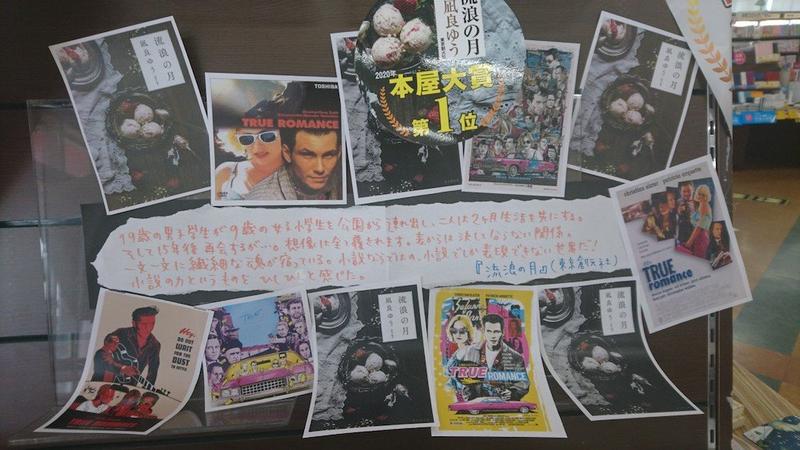 流浪の月
凪良ゆう
流浪の月
凪良ゆう
2020年
本屋大賞
第1位
流浪の月
凪良ゆう
TOSHIBA
TRUE ROMANCE
19歳の男子学生が9歳の女子小学生を公園から連れ出し、二人は2ヶ月生活を共にする。
そして15年後再会するが…。想像は全て覆されます。表からは決してならない関係。
一文一文に繊細な魂が宿っている。小説ならではの、小説でしか表現できない世界だ!
小説の力というものをひしひしと感じた。
『流浪の月』(東京創元社)
christian slater patricia arquette
TRUE
romance
HEY,
DO NOT
WAIT
FOR THE
DUST
TO SETTLE
TRUE ROMANCE
流浪の月
凪良ゆう
TRUE ROMANCE
流浪の月
凪良ゆう